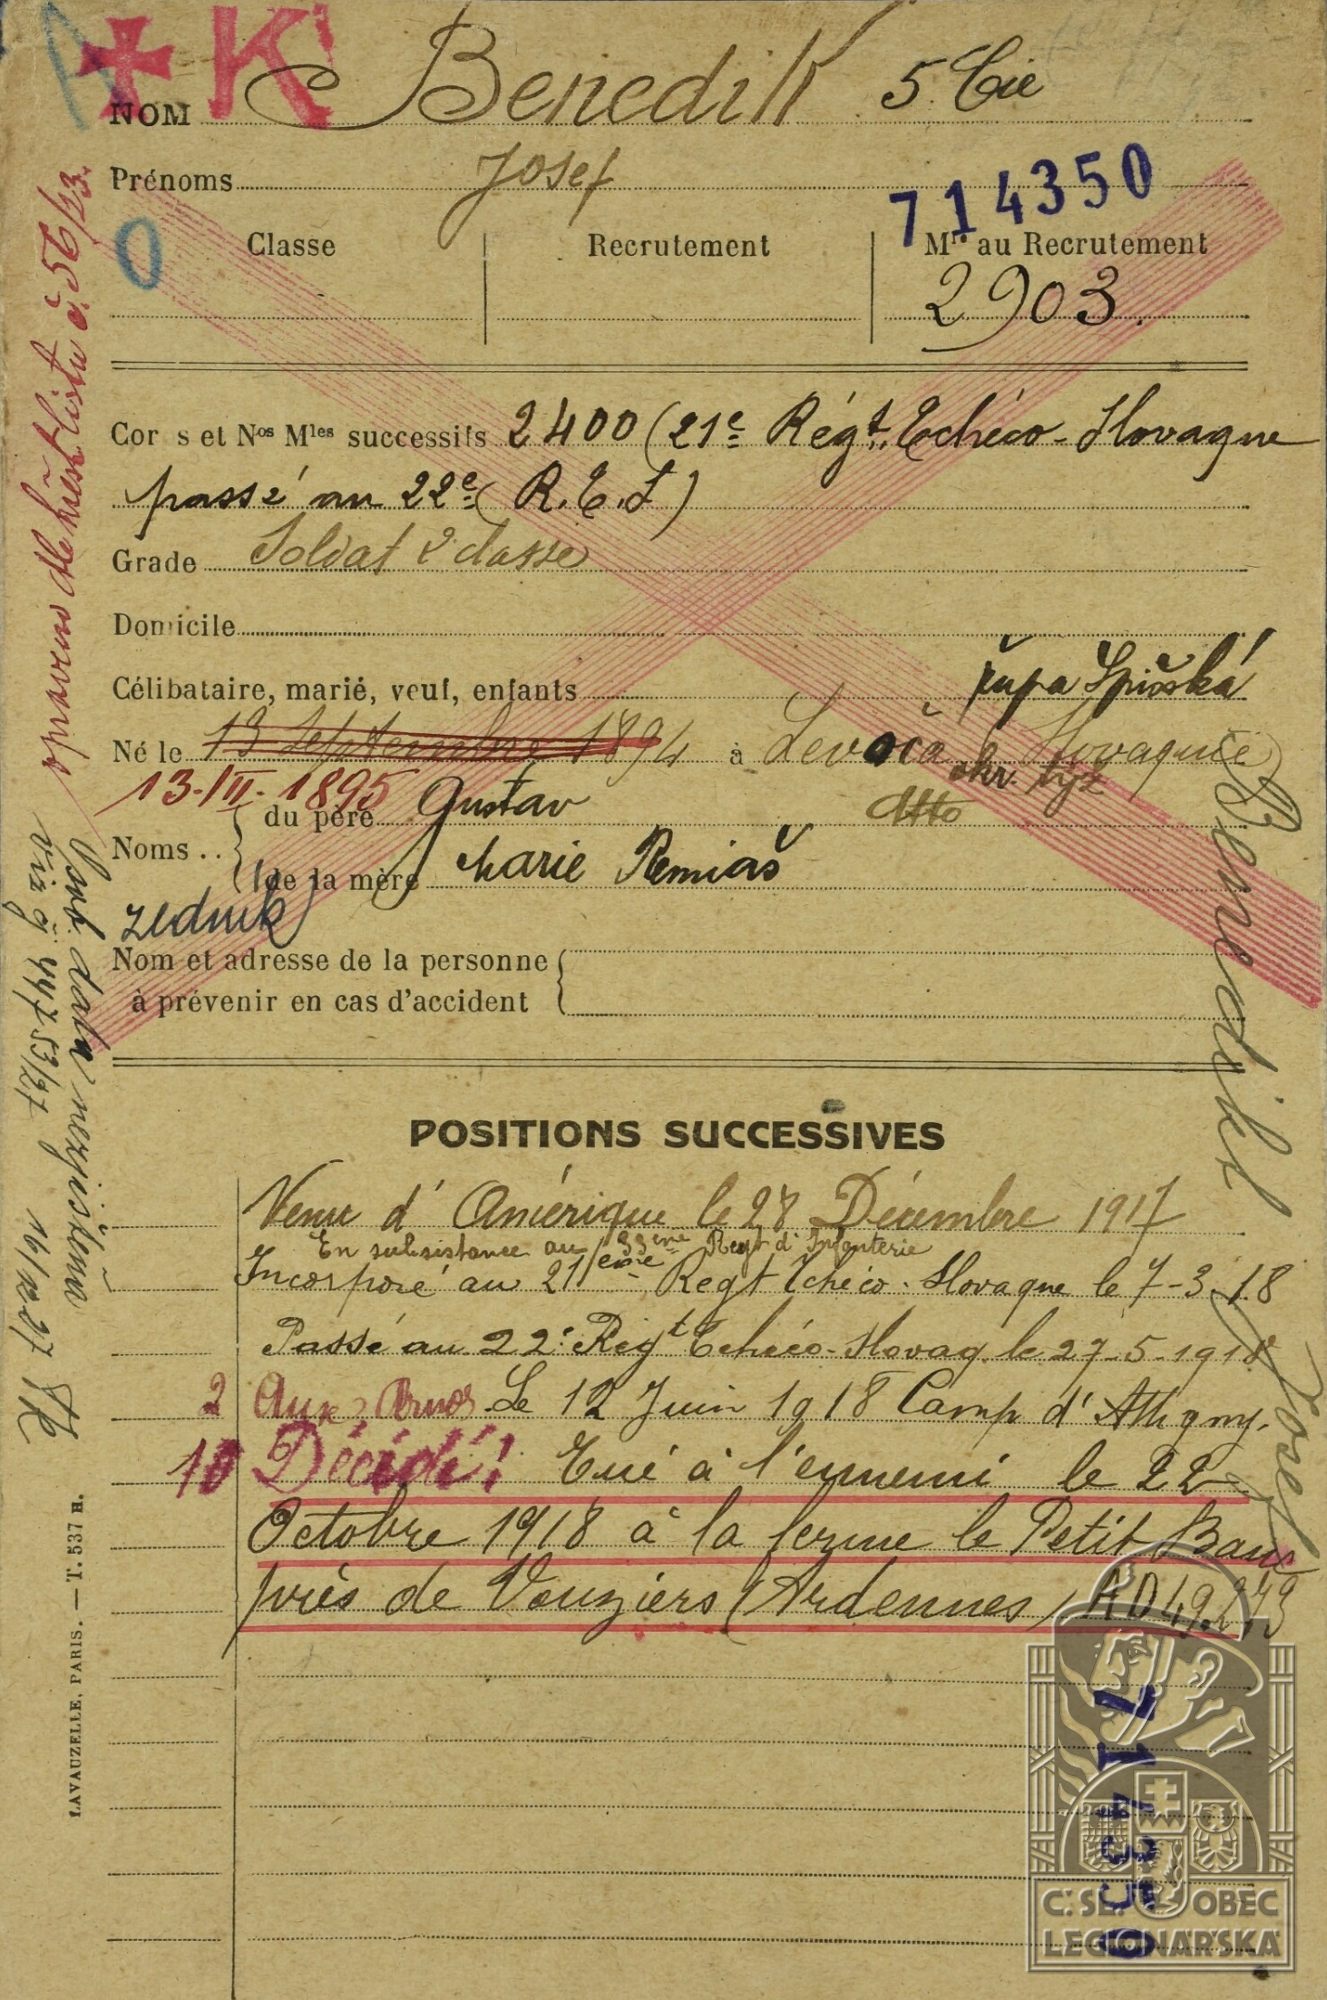 + K
NOM Benedik 5. Cie
Prénoms Josef
714350
O
Classe Recrutement Mle au Recrutement
2903.
Cor s et Nos Mles successifs 2400 (21e Régt. Tchéco-Slovaque
passé au 22e (R.T.S)
Grade Soldat 2 classe
Domicile
Célibataire, marié, veuf, enfants župa Spišská
Né le 13 Septembre 1894 à Levoča Slovaquie
13.III.1895 okr. týž
Noms .. du père Gustav
de la mère Marie Remiaš
zedník
Nom et adresse de la personne
à prévenir en cas d'accident
POSITIONS SUCCESSIVES
Venu d'Amérique le 28 Décembre 1917
En subsistance au 33ème Regt d'Infanterie
Incorporé au 21eme Regt Tchéco-Slovaque le 7-3-18
Passé au 22e Régt Tchéco-Slovaq. le 27-5-1918
2 Aux Armées Le 12 Juin 1918 Camp d'Attigny.
10 Décédé! Tué à l'ennemi le 22
Octobre 1918 à la ferme le Petit Bans
près de Vouziers (Ardennes) AD 49.273
opraveno dle křest. listu č. 56/23.
viz č. 44753/27 16/XI 27
Benedik Josef
LAVAUZELLE, PARIS. — T. 537 H.
714350
Č. SL. OBEC
LEGIONÁŘSKÁ